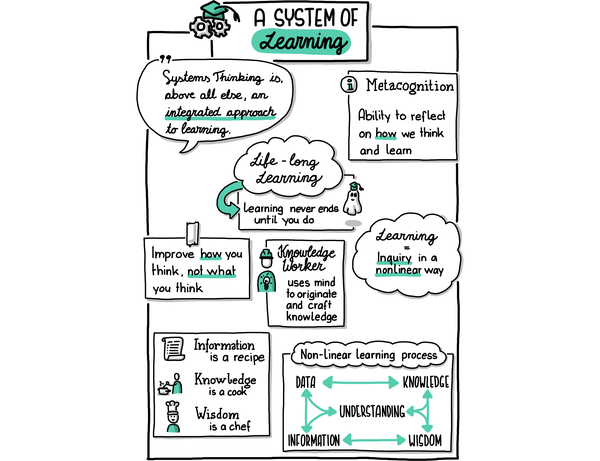 A SYSTEM OF
Learning
"
Systems Thinking is,
above all else, an
integrated approach
to learning.
i Metacognition
Ability to reflect
on how we think
and learn
Life-long
Learning
Learning never ends
until you do
Improve how you
think, not what
you think
Knowledge
Worker
uses mind
to originate
and craft
knowledge
Learning
=
Inquiry in a
nonlinear way
Information
is a recipe
Knowledge
is a cook
Wisdom
is a chef
Non-linear learning process
DATA KNOWLEDGE
UNDERSTANDING
INFORMATION WISDOM